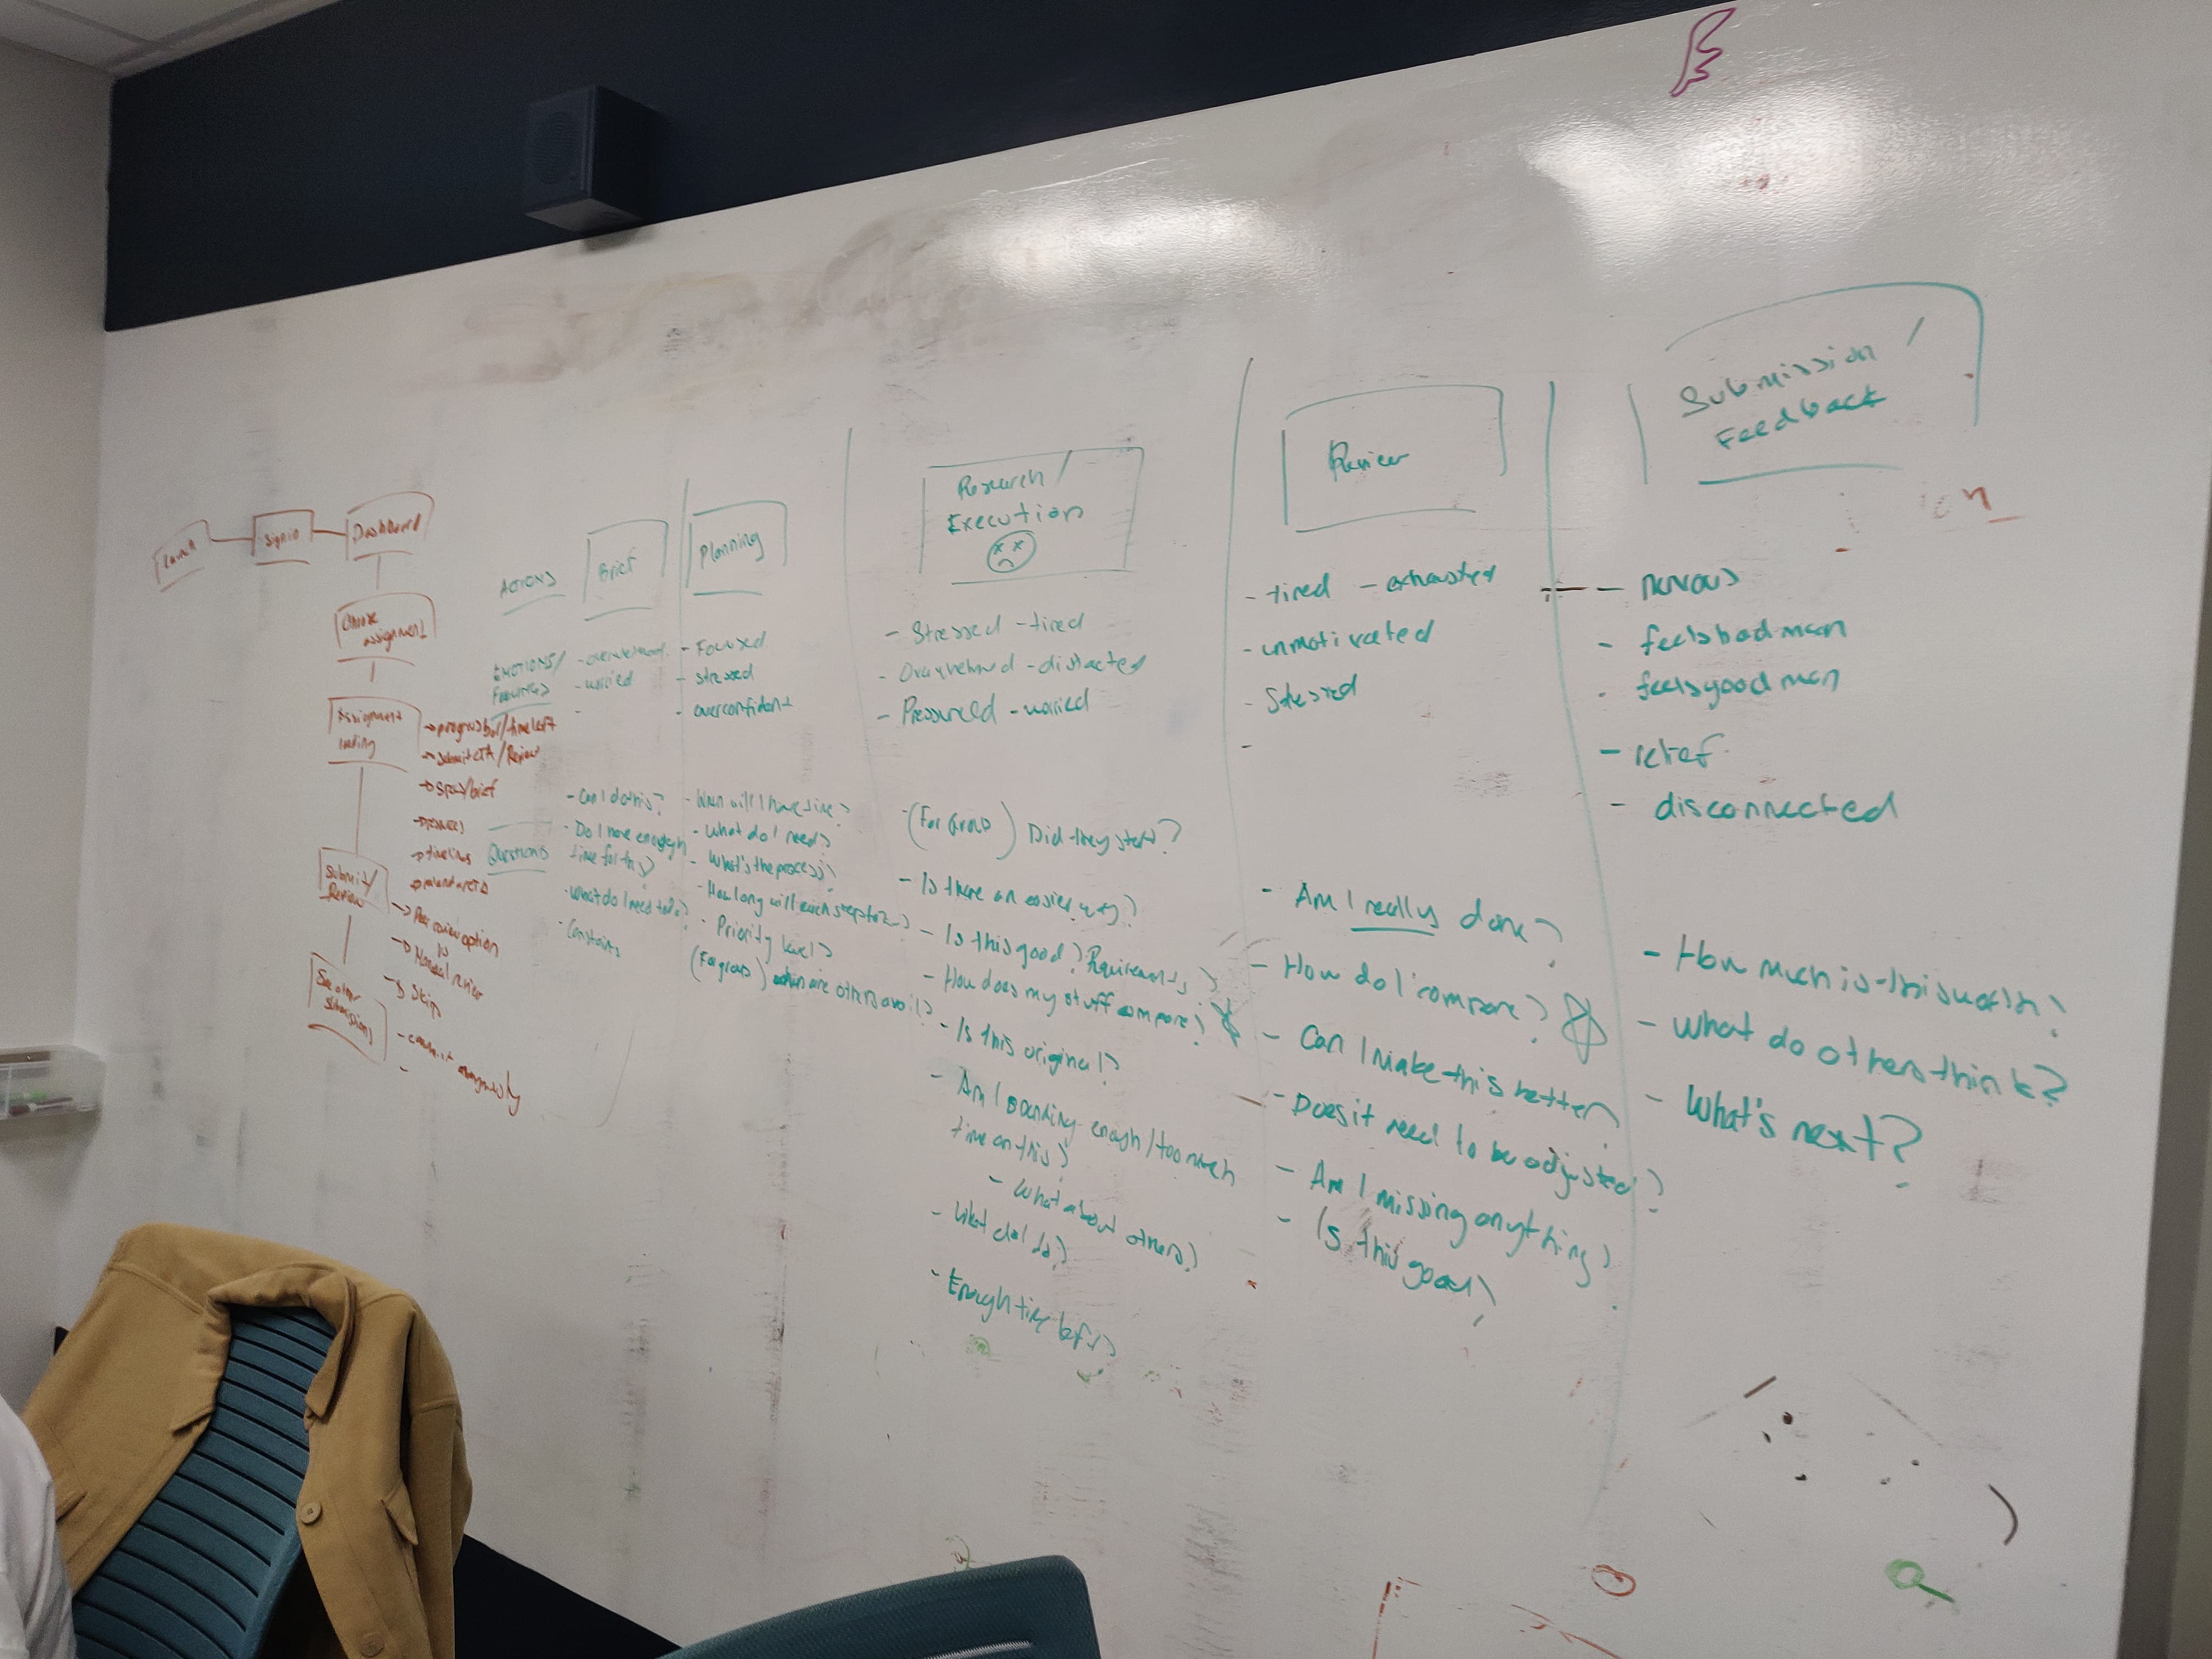 Launch
Sign in
DashBoard
Choose
assignment
Assignment
landing
→ progress bar/time left
→ submit CTA / Review
→ specs/brief
→ timelines
Submit/
Review
→ Peer review option
→ Skip
See other
submissions
ACTIONS
EMOTIONS/
FEELINGS
Questions
Brief
- worried
- Can I do this?
- Do I have enough
time for this?
- What do I need to do?
Planning
- Focused
- stressed
- overconfident
- When will I have time?
- What do I need?
- What's the process?
- How long will each step take?
- Priority level?
(For group) when are others avail?
Research/
Execution
- Stressed - tired
- distracted
- Pressured - worried
- (For Group) Did they start?
- Is there an easier way?
- Is this good? Requirements?
- How does my stuff compare?
- Is this original?
- Am I spending enough/too much
time on this?
- What about others?
- What do I do?
- Enough time left?
Review
- tired - exhausted
- unmotivated
- Stressed
-
- Am I really done?
- How do I compare?
- Can I make this better?
- Does it need to be adjusted?
- Am I missing anything?
- Is this good?
Submission/
Feedback
- nervous
- feelsbadman
- feelsgoodman
- relief
- disconnected
- How much is this worth?
- What do others think?
- What's next?